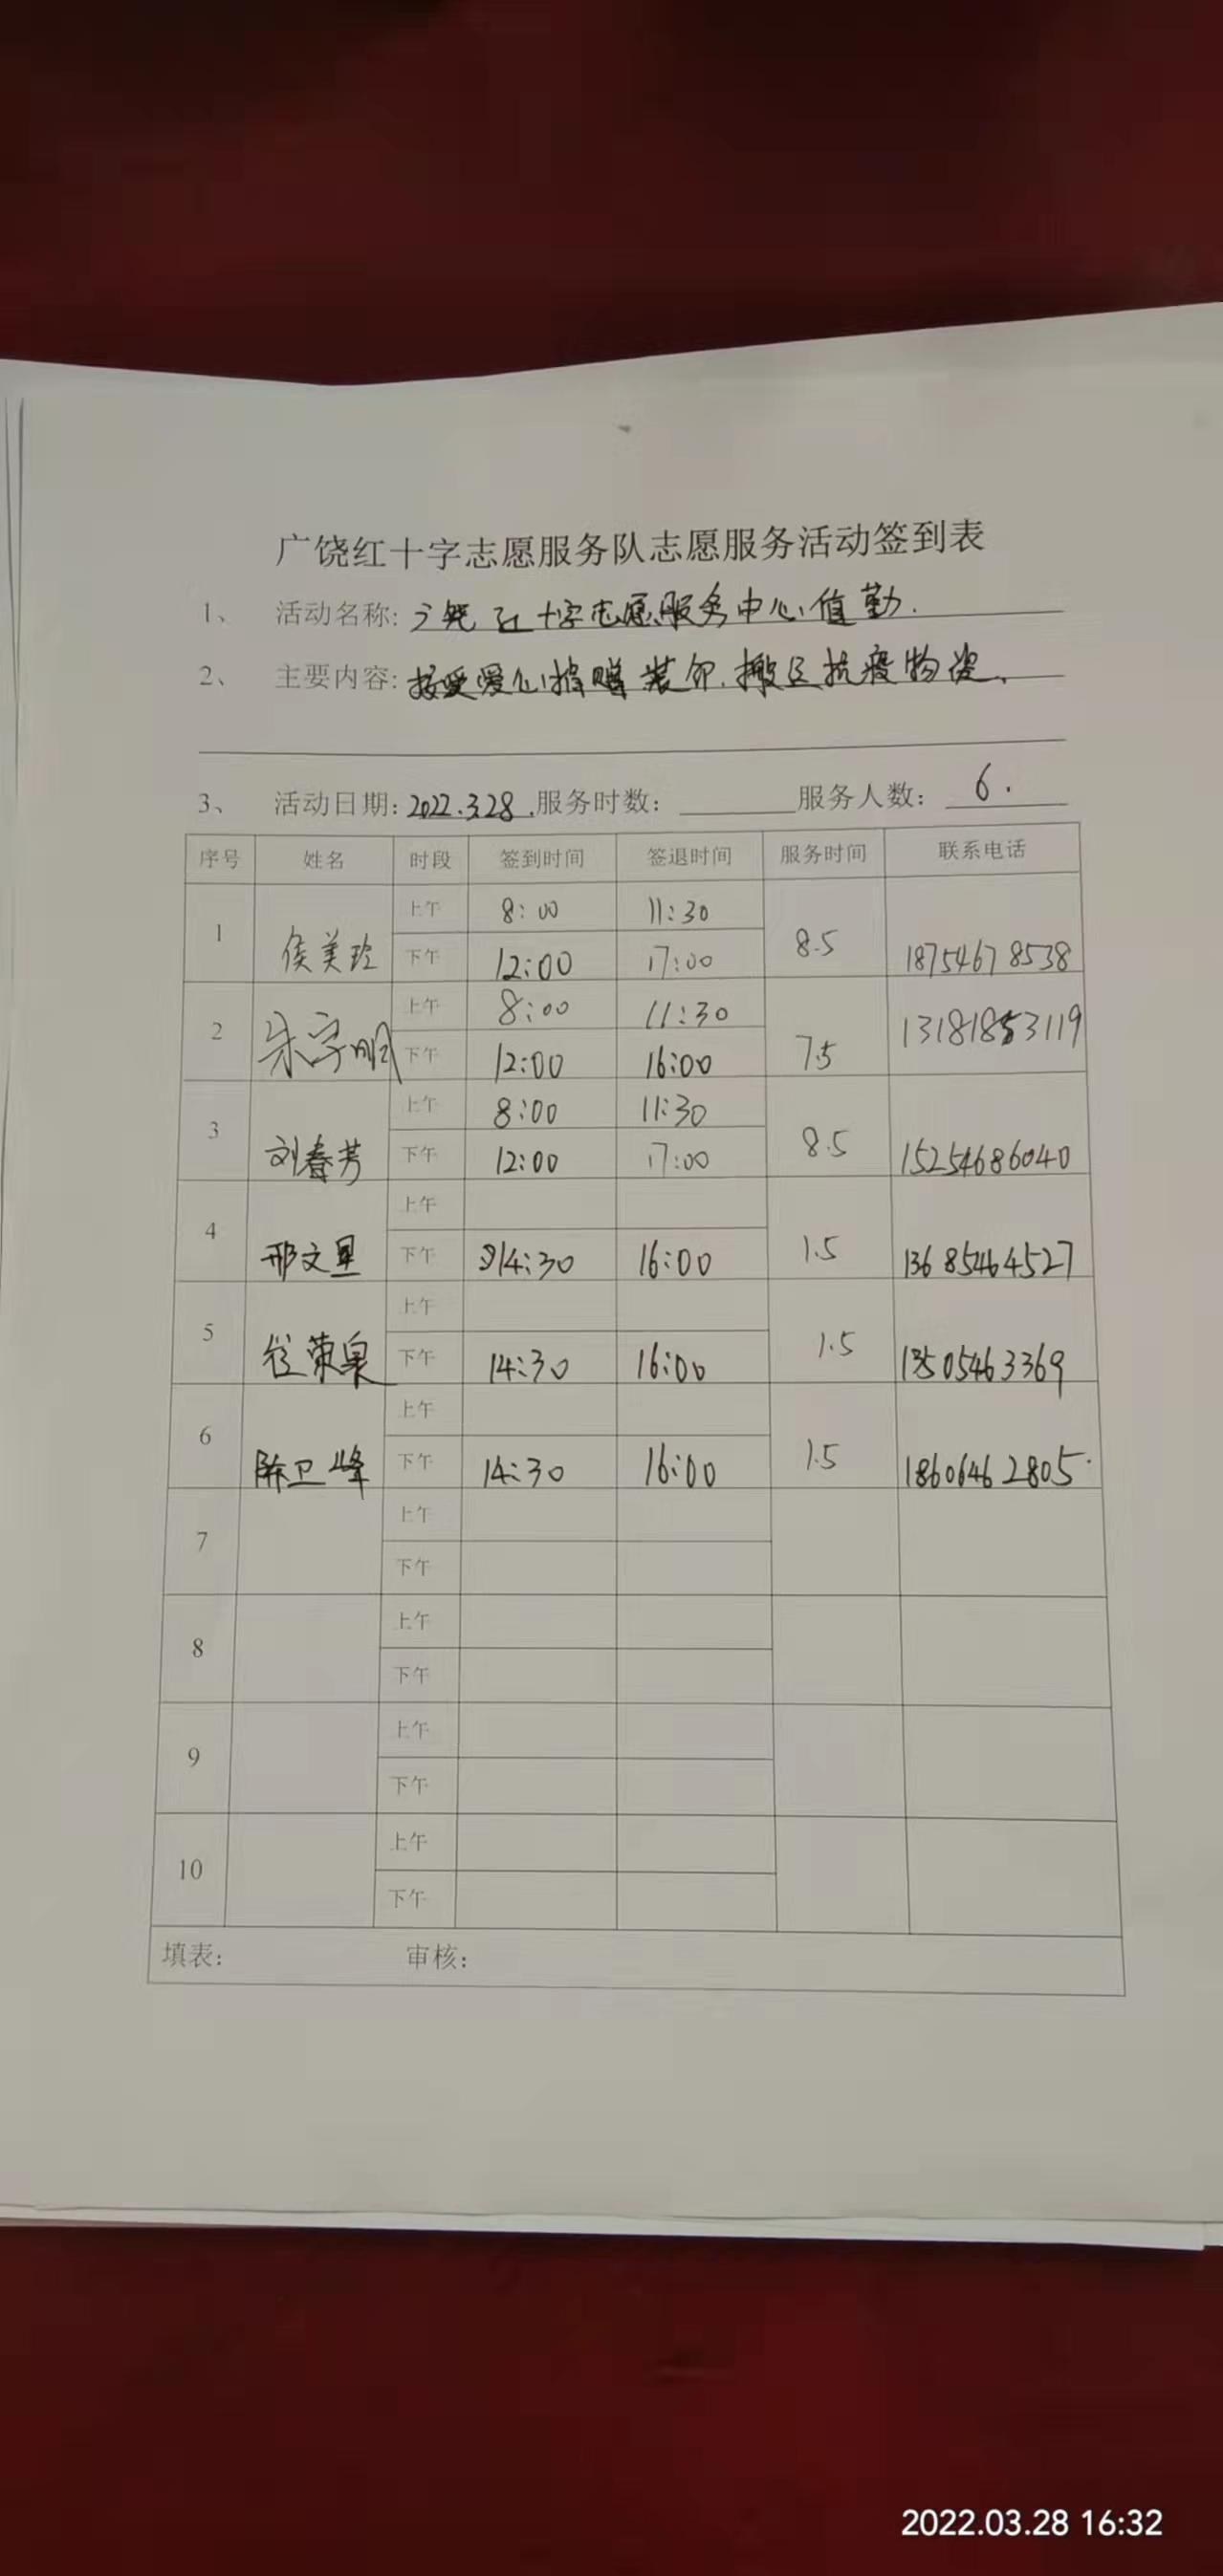 广饶红十字志愿服务队志愿服务活动签到表
1、 活动名称: 广饶红十字志愿服务中心值勤.
2、 主要内容: 接受爱心捐赠装卸.搬运抗疫物资.
3、 活动日期: 2022.3.28. 服务时数: 服务人数: 6.
序号 姓名 时段 签到时间 签退时间 服务时间 联系电话
1 侯美玲 上午 8:00 11:30 8.5 18754678538
下午 12:00 17:00
2 宋字明 上午 8:00 11:30 7.5 13181853119
下午 12:00 16:00
3 刘春芳 上午 8:00 11:30 8.5 15254686040
下午 12:00 17:00
4 邢文星 上午 1.5 13685464527
下午 14:30 16:00
5 荣泉 上午 1.5 13505463369
下午 14:30 16:00
6 陈卫峰 上午 1.5 18606462805
下午 14:30 16:00
7 上午
下午
8 上午
下午
9 上午
下午
10 上午
下午
填表: 审核:
2022.03.28 16:32